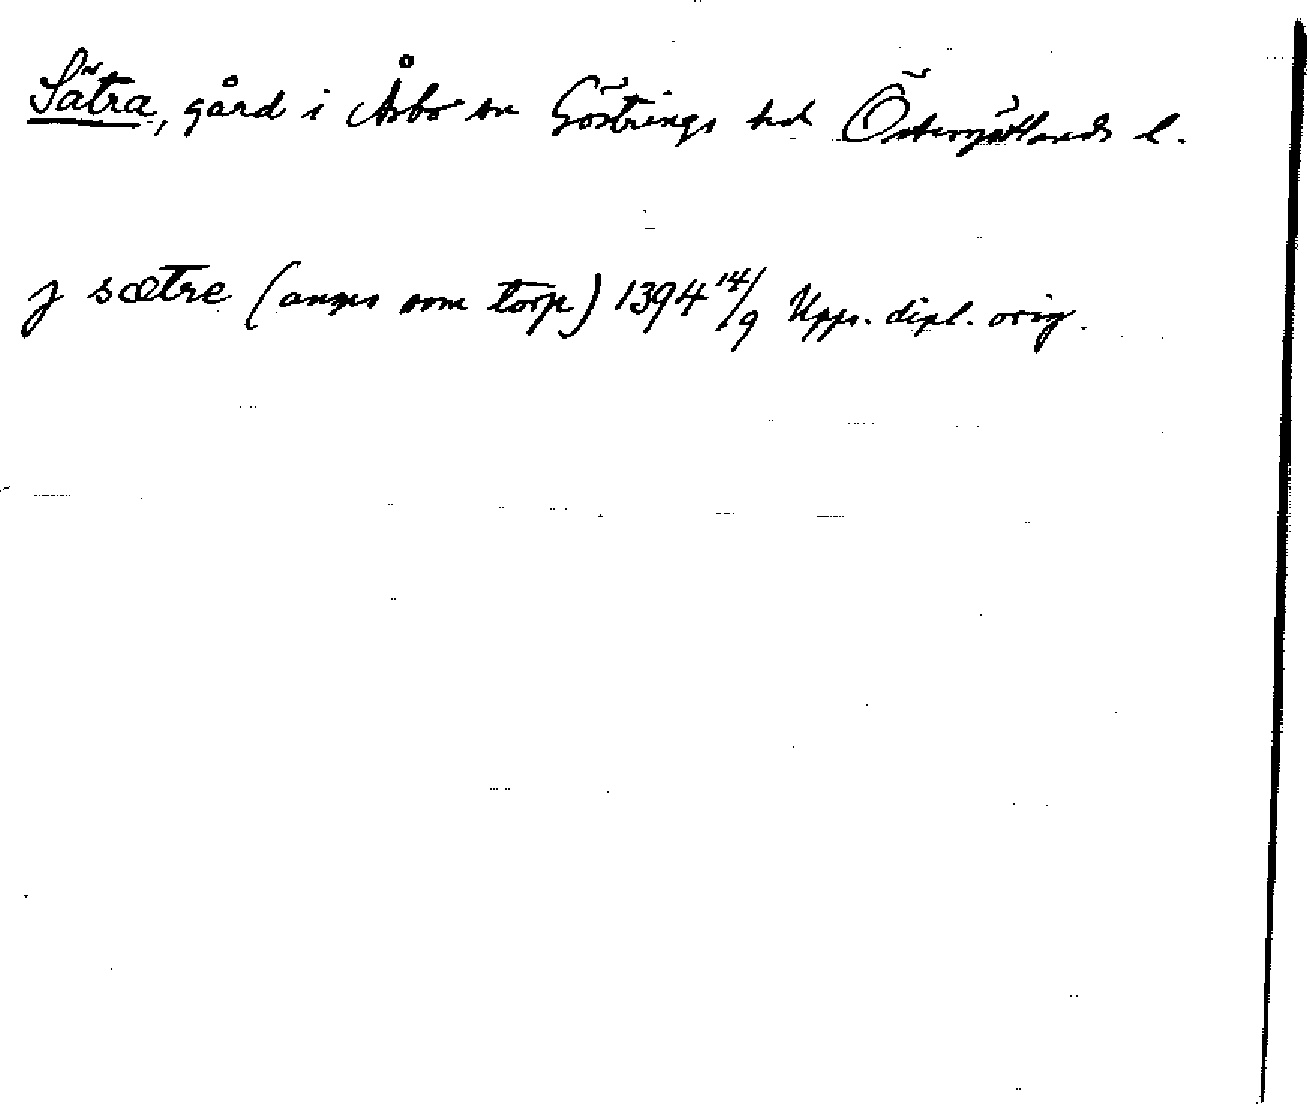 Sätra, gård i Åsbo sn Göstrings hd Östergötlands l.
j sætre (anges som torp) 1394 14/9 Upps. dipl. orig.